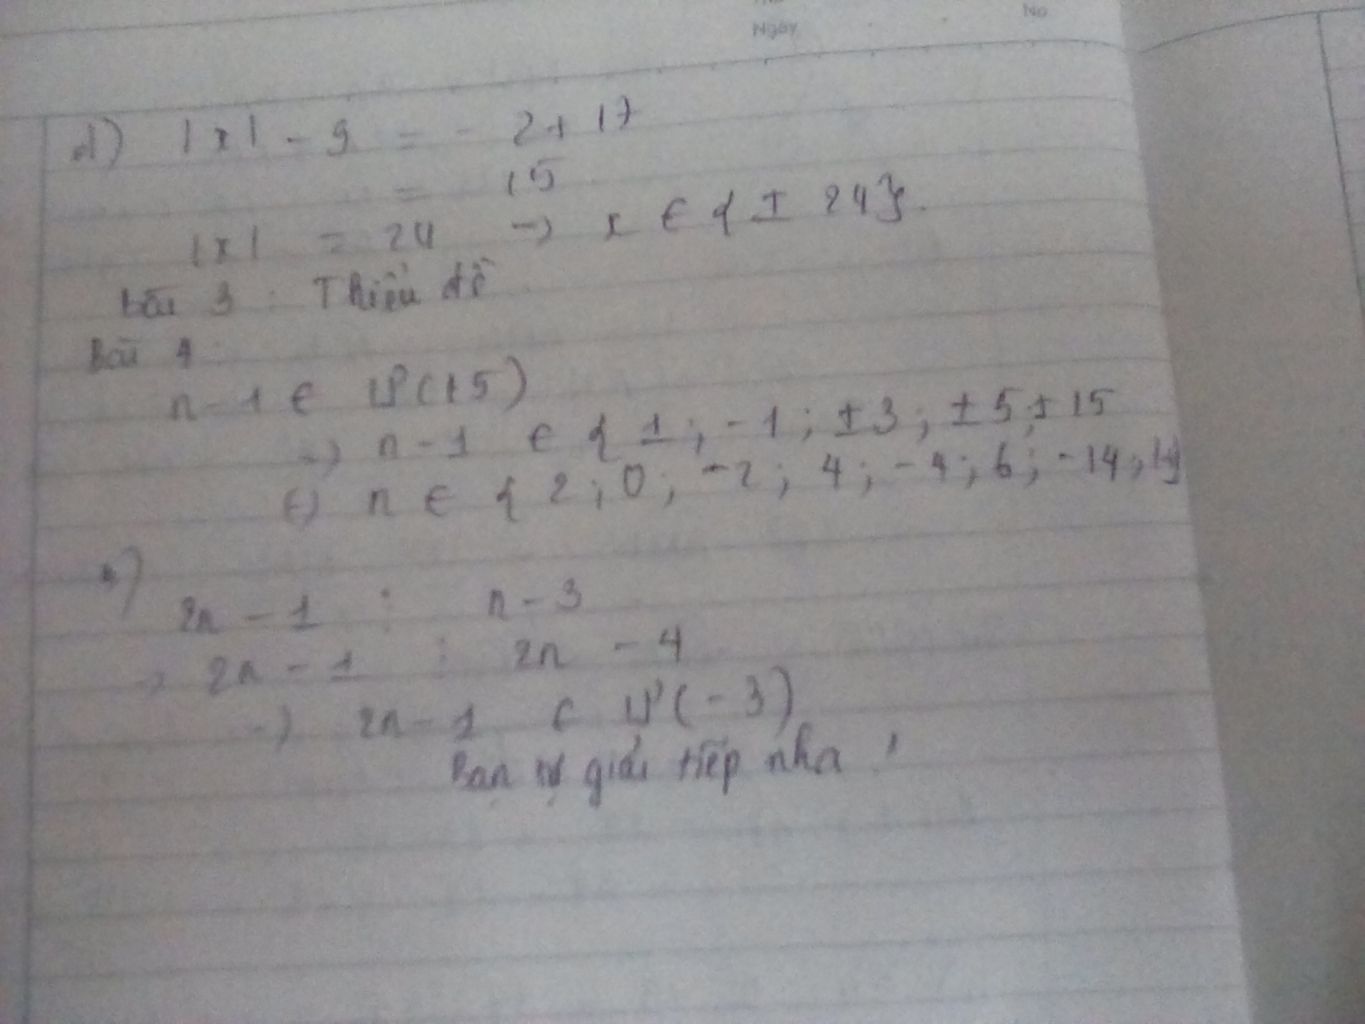 Ngày
No
d) |x| - 9 = - 2 + 17
= 15
|x| = 24 → x ∈ { ± 24}.
bài 3 : Thiếu đề
Bài 4
n - 1 ∈ Ư(15)
→ n - 1 ∈ { 1 ; -1 ; ±3 ; ±5 ; ±15
n ∈ { 2 ; 0 ; -2 ; 4 ; -4 ; 6 ; -14 ;
2n - 1 ⋮ n - 3
→ 2n - 1 ⋮ 2n - 4
→ 2n - 1 ∈ Ư(-3)
Bạn tự giải tiếp nha !